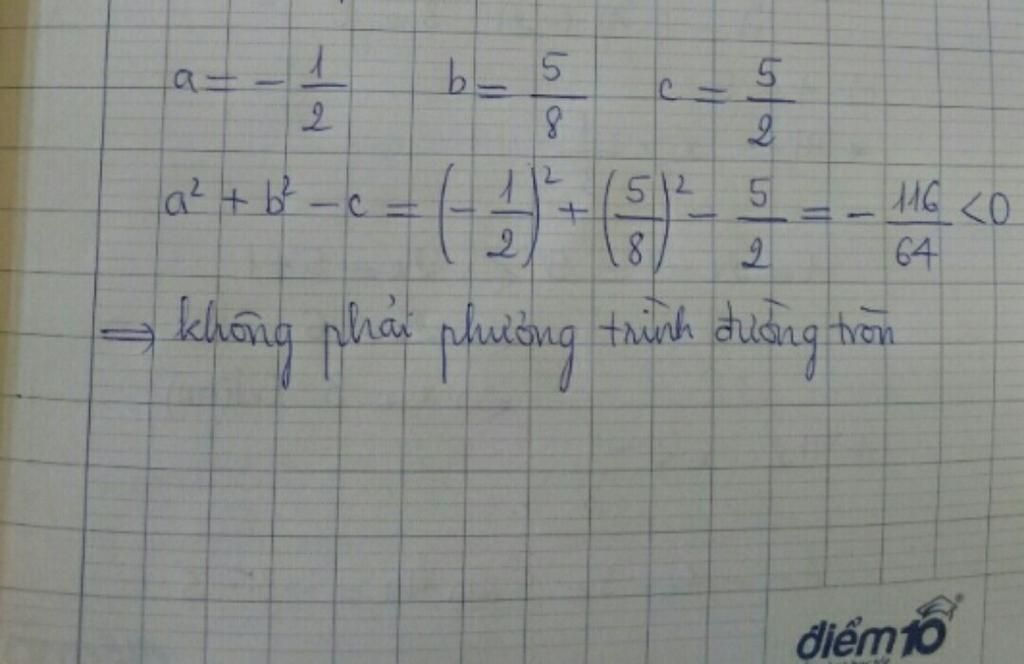 a = - 1/2 b = 5/8 c = 5/2
a² + b² - c = (- 1/2)² + (5/8)² - 5/2 = - 116/64 < 0
⇒ không phải phương trình đường tròn
điểm10